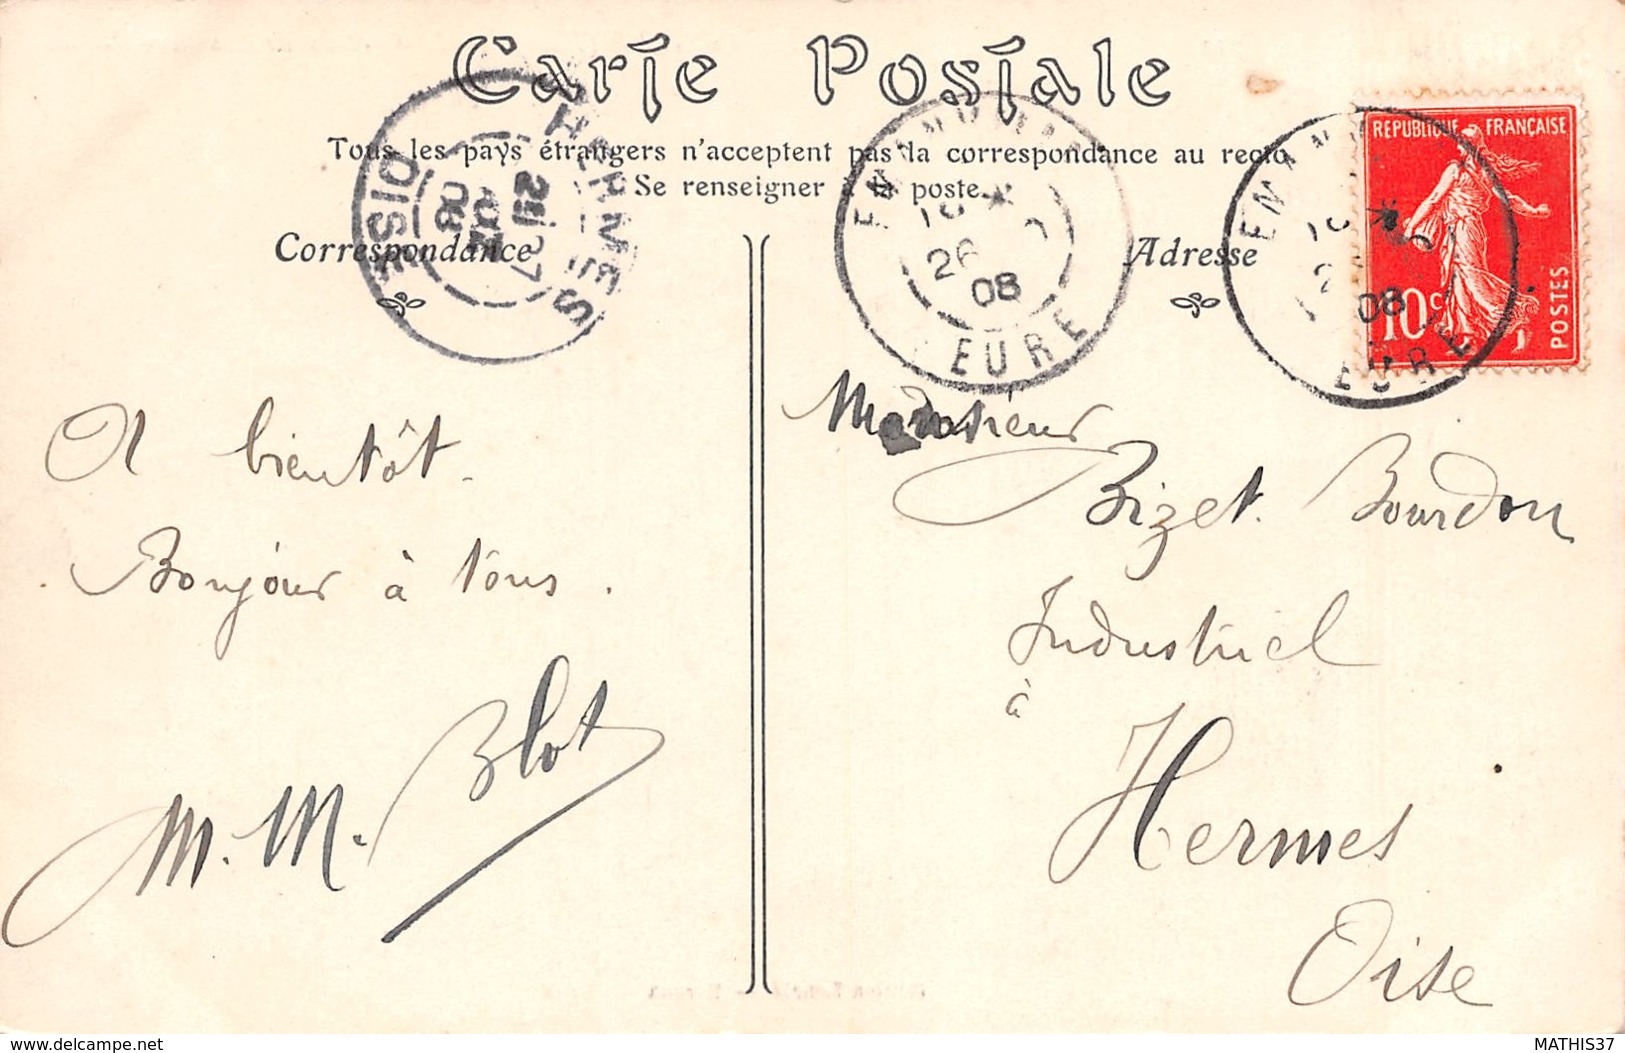 Carte Postale
Tous les pays étrangers n'acceptent pas la correspondance au recto
Se renseigner à la poste.
Correspondance
Adresse
HERMES
OISE
08
26
08
EURE
08
EURE
REPUBLIQUE FRANÇAISE
10c
POSTES
A bientôt.
Bonjour à tous.
M. M. Blot
Monsieur
Bizet. Bourdon
Industriel
à
Hermes
Oise
www.delcampe.net
MATHIS37